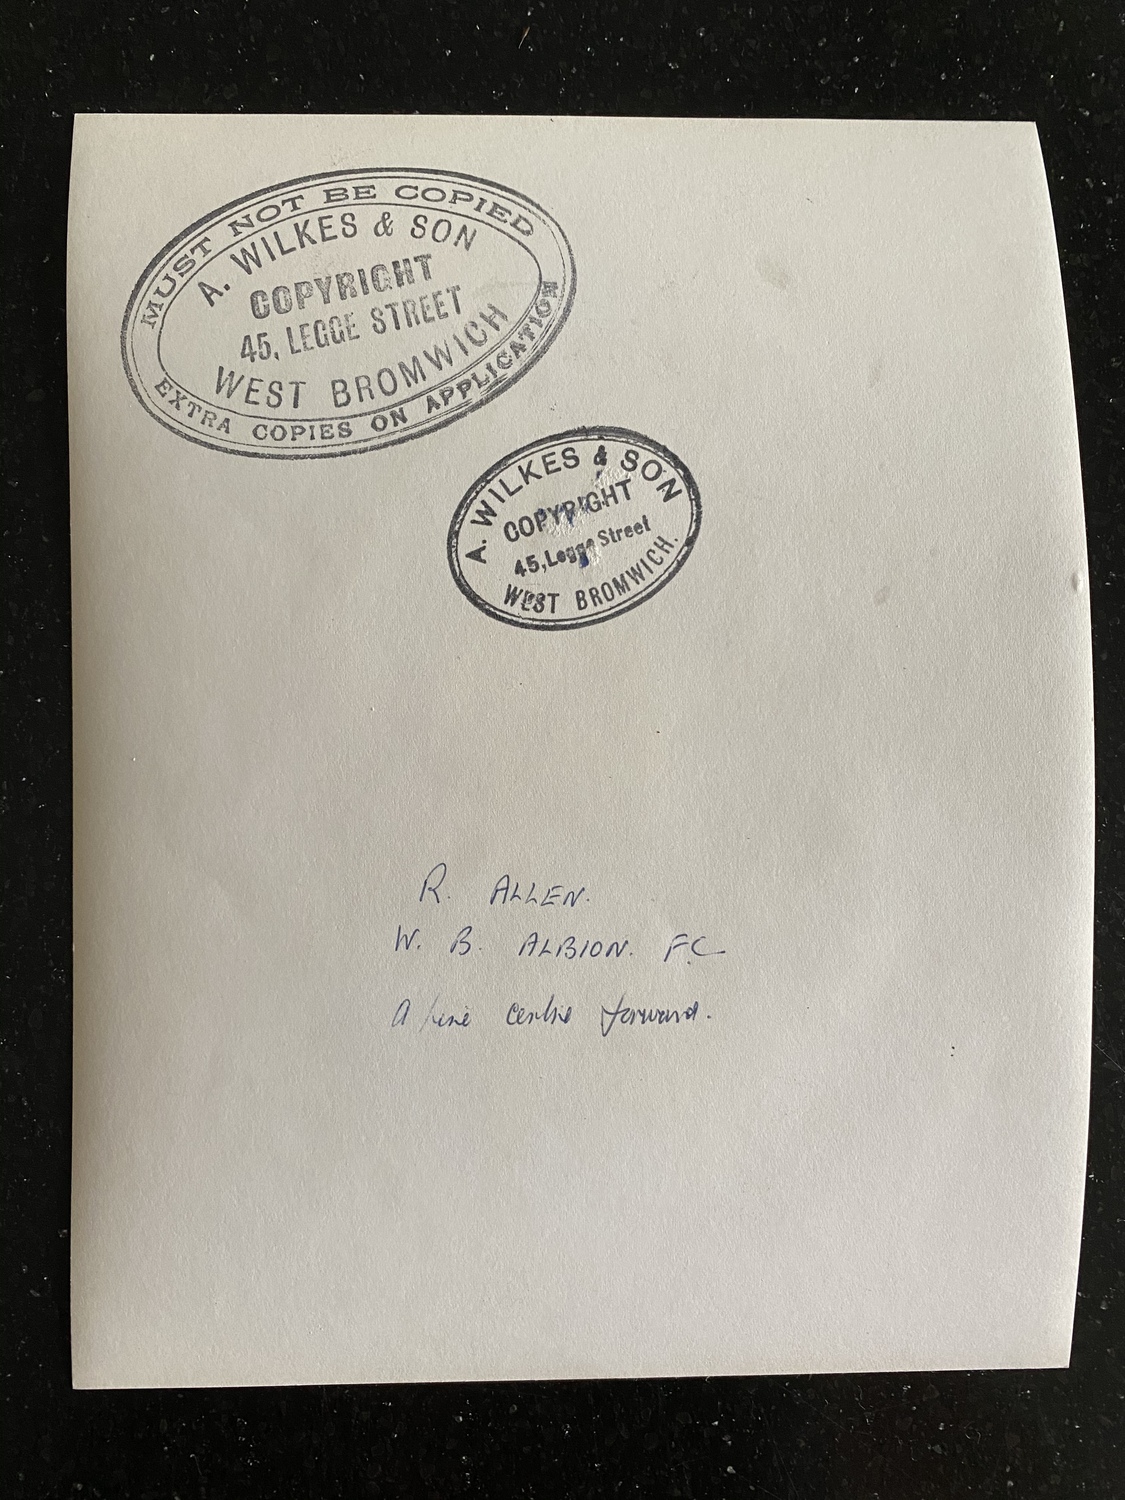 MUST NOT BE COPIED
A. WILKES & SON
COPYRIGHT
45, LEGGE STREET
WEST BROMWICH
EXTRA COPIES ON APPLICATION
A. WILKES & SON
COPYRIGHT
45, Legge Street
WEST BROMWICH.
R. ALLEN.
W. B. ALBION. FC
A fine centre forward.